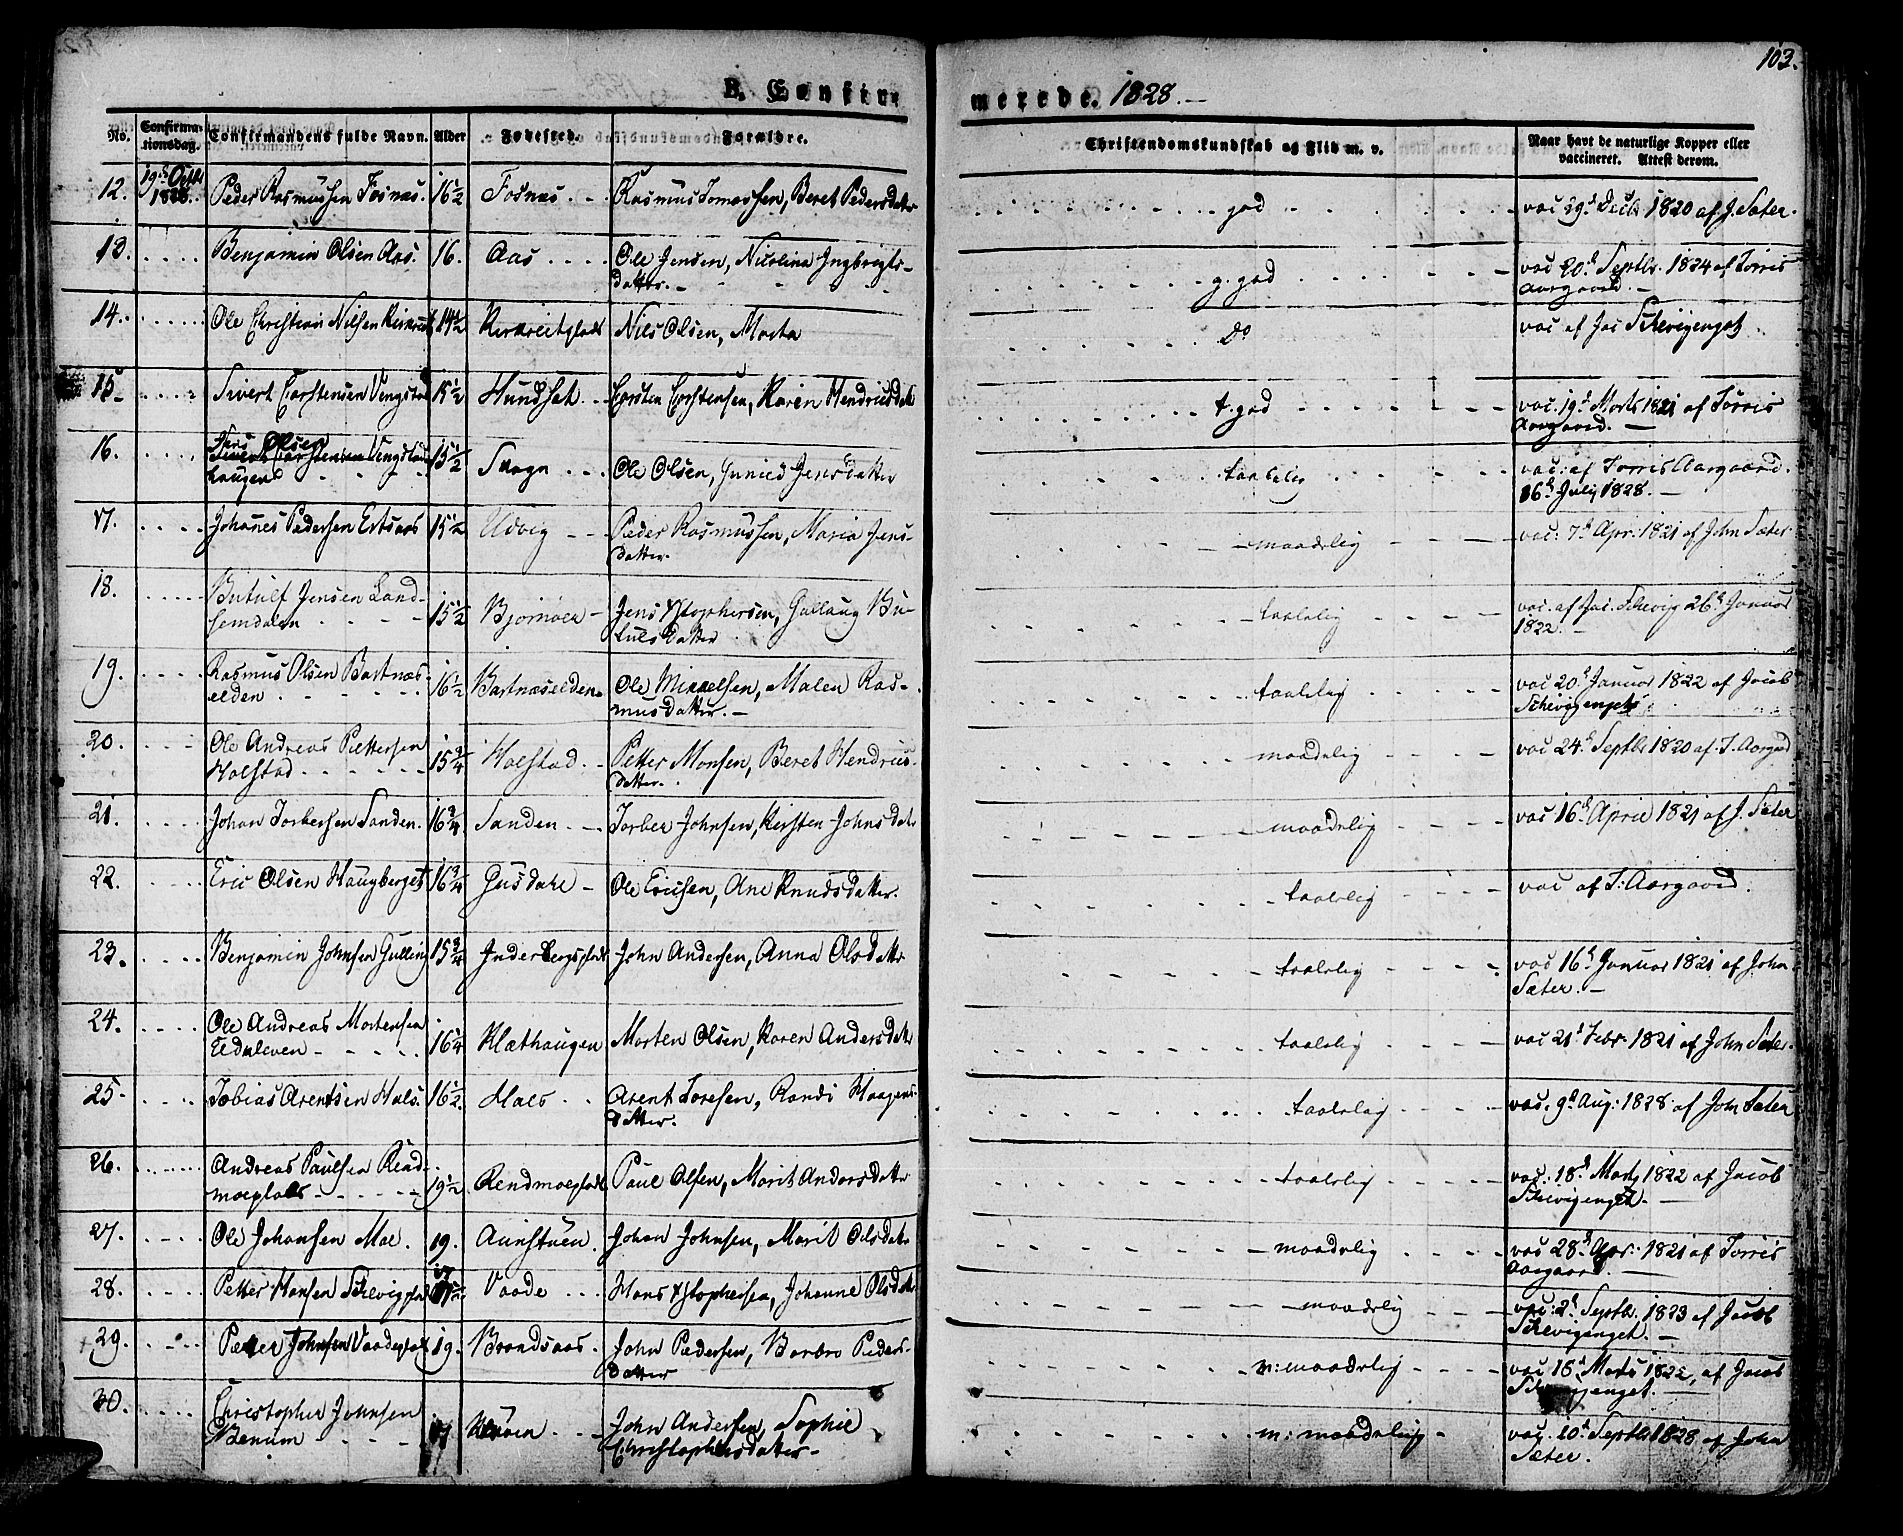 103.
B. Confir merede. 1828.
No. Confirmationsdag. Confirmandens fulde Navn. Alder Fødested. Forældre. Christendomskundskab og Flid m. v. Naar havt de naturlige Kopper eller vaccineret. Attest derom.
12. 19de Octbr 1828. Peder Rasmussen Fosnæs. 16½ Fosnæs Rasmus Tomassen, Beret Pedersdatr god vac 29d Decbr 1820 af J. Sæter.
13. Benjamin Olsen Aas. 16. Aas Ole Jensen, Nicolina Ingbrigts-
datter. g. god vac 20d Septbr. 1824 af Torris
Aargaard.
14. Ole Christian Nilsen 14½ Nils Olsen, Marta Do vac af Jac Schevigenget
15 Sivert Carstensen Vengstad 15½ Hundset Corsten Corstensen, Karen Hendricsdatr t. god vac. 19d Marts 1821 af Torris
Aargaard.
16. Jens Olsen
haugen 15½ Skogn Ole Olsen, Jensdatter taalelig vac: af Torris Aargaard.
16d July 1828.
17. Johanes Pedersen 15½ Udvig Peder Rasmussen, Maria Jens-
datter. maadelig vac: 7d Apr: 1821 af John Sæter
18. Butulf Jensen Land-
semdalen 15½ Bjørnøen Jens Xstophersen, Gullaug Bu-
tulsdatter taalelig vac. af Jac. Schevig 26d Januar
1822.
19. Rasmus Olsen Bartnæs-
elden 16½ Bartnæselden Ole Mikkelsen, Malen Ras-
musdatter. taalelig vac 20d Januar 1822 af Jacob
Schevigenget
20. Ole Andreas Pettersen
Holstad 15¾ Holstad Petter Monsen, Beret Hendrics-
datter. maadelig vac 24d Septbr 1820 af T. Aargard
21. Johan Torbersen Sanden. 16¾ Sanden Torber Johnsen, Kirsten Johnsdatr maadelig vac 16d April 1821 af J. Sæter
22. Eric Olsen Haugberget 16¾ Gusdahl Ole Ericsen, Ane Knudsdatter. taalelig vac af T: Aargaard.
23. Benjamin Johnsen Gulling 15¾ Inderbergsplads John Andersen, Anna Olsdatr taalelig vac 16d Januar 1821 af John
Sæter.
24. Ole Andreas Mortensen
16¼ Klæthaugen Morten Olsen, Karen Andersdatr taalelig vac 21d Febr. 1821 af John Sæter.
25. Tobias Arentsen Hals. 16½ Hals Arent Toresen, Randi Haagens-
datter. taalelig vac. 9d Aug: 1828 af John Sæter
26. Andreas Paulsen Rend-
moeplads 19½ Rendmoeplads Paul Olsen, Marit Andersdatr taalelig vac: 18d Marts 1822 af Jacob
Schevigenget.
27. Ole Johansen Moe. 19. Aunstuen. Johan Johnsen, Marit Olsdatr maadelig vac 28d Apr: 1821 af Torris
Aargaard.
28. Petter Hansen Schevigplads Vaade Hans Xstophersen, Johanne Olsdatr maadelig vac: 2d Septbr. 1823 af Jacob
Schevigenget.
29. Petter Johnsen Vaadeplads 19. Brandsaas. John Pedersen, Barbro Peders-
datter m: maadelig vac 15d Marts 1822, af Jacob
Schevigenget.
30. Christopher Johnsen
Benum 17 John Andersen, Sophie
Christophersdatter m: maadelig vac. 20d Septbr 1828 af John
Sæter.